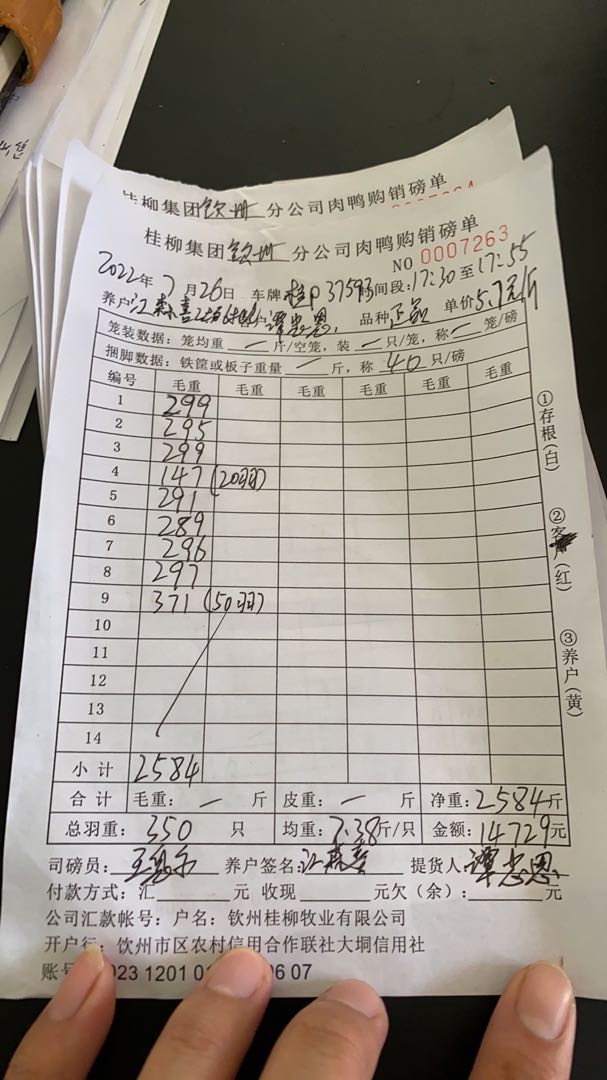 桂柳集团钦州分公司肉鸭购销磅单
桂柳集团钦州分公司肉鸭购销磅单
NO 0007263
2022年7月26日 车牌桂P37593 时间段:17:30至17:55
养户江森喜 客户谭忠恩 品种正品 单价5.7元/斤
笼装数据：笼均重 一 斤/空笼，装 一 只/笼，称 一 笼/磅
捆脚数据：铁筐或板子重量 一 斤，称 40 只/磅
编号 毛重 毛重 毛重 毛重 毛重 毛重
1 299
2 295
3 299
4 147 (20羽)
5 291
6 289
7 296
8 297
9 371 (50羽)
10
11
12
13
14
小计 2584
合计 毛重： 一 斤 皮重： 一 斤 净重：2584斤
总羽重： 350 只 均重：7.38斤/只 金额：14729元
司磅员： 养户签名：江森喜 提货人：谭忠恩
付款方式：汇 元 收现 元欠（余）： 元
公司汇款帐号：户名：钦州桂柳牧业有限公司
开户行：钦州市区农村信用合作联社大垌信用社
账号 023 1201 06 07
①存根(白)
②客户(红)
③养户(黄)